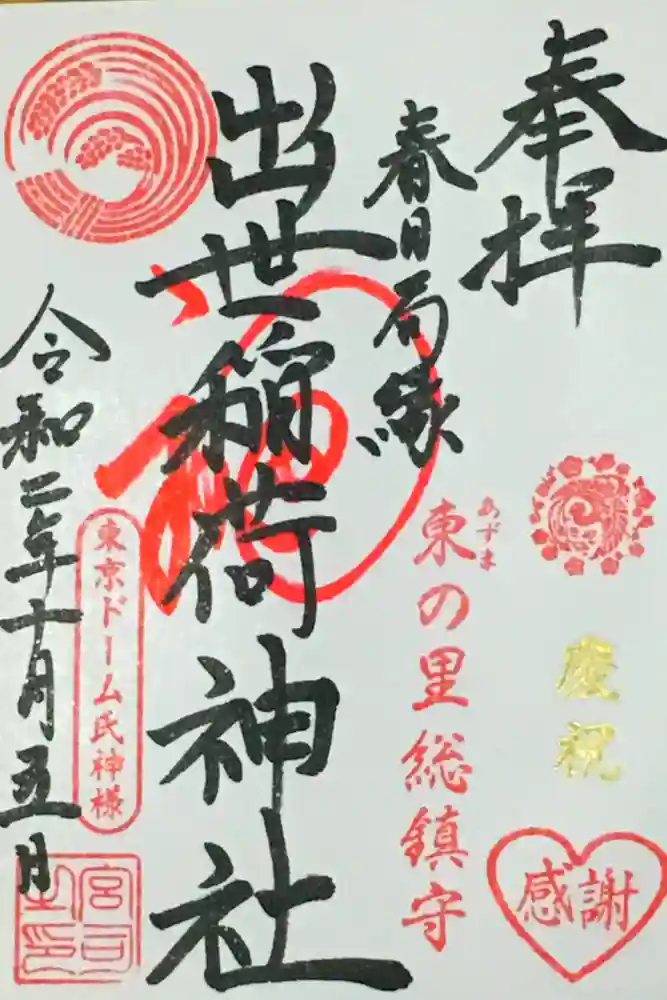 奉拝
慶祝
感謝
あずま
東の里総鎮守
春日局縁
出世稲荷神社
東京ドーム氏神様
令和二年十月五日
宮司之印